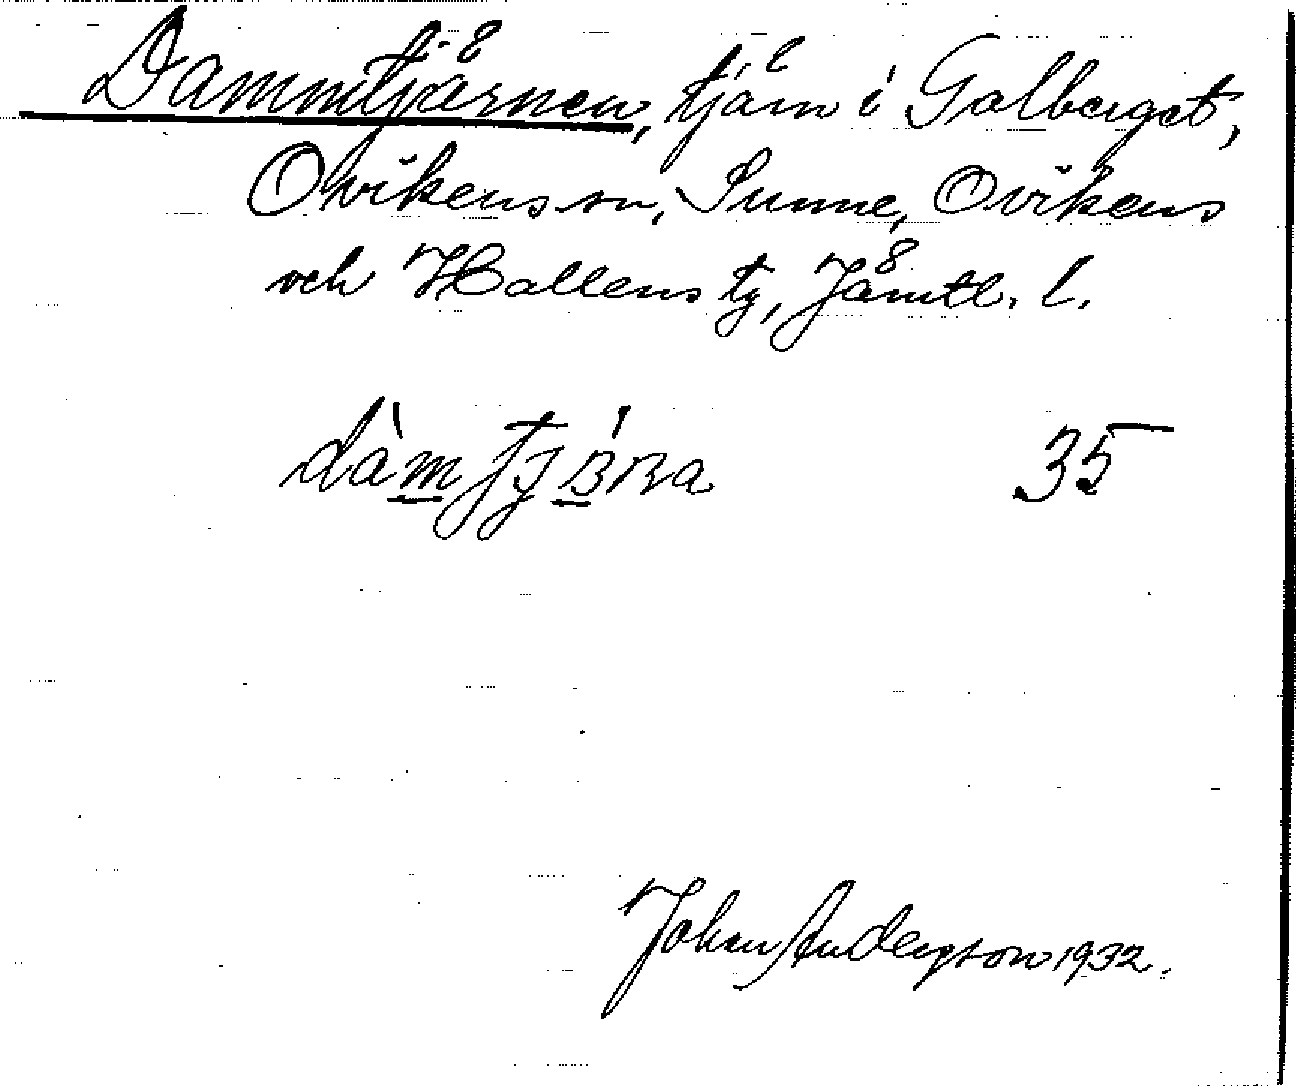 Dammtjärnen, tjärn i Galberget,
Ovikens sn, Sunne, Ovikens
och Hallens tg, Jämtl. l.
35
Johan Anderson 1932.